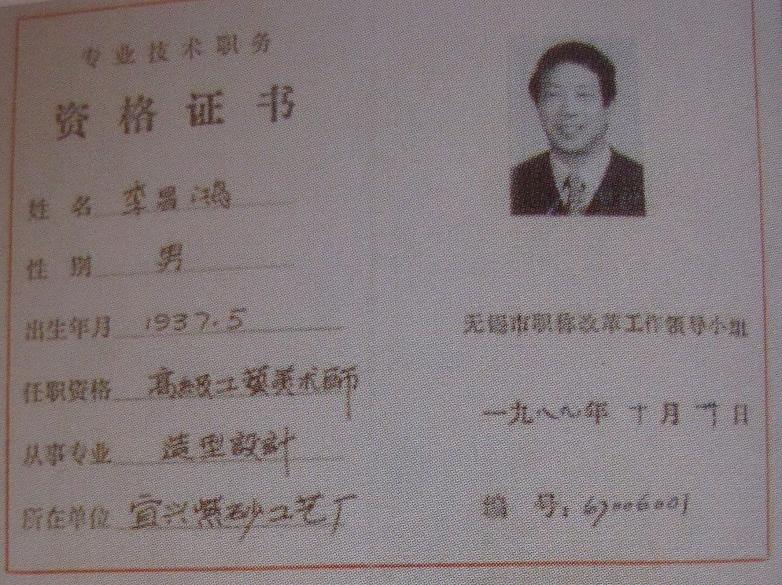 专业技术职务
资格证书
姓名 李昌鸿
性别 男
出生年月 1937.5
任职资格 高级工艺美术師
从事专业 造型設計
所在单位 宜兴紫砂工艺厂
无锡市职称改革工作领导小组
一九八八年 十月 日
编号: